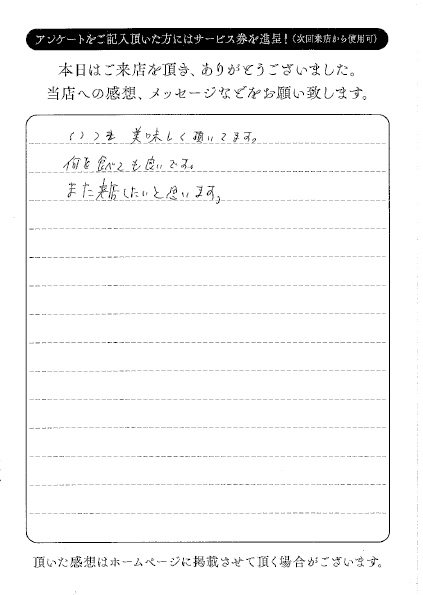 アンケートをご記入頂いた方にはサービス券を進呈！（次回来店から使用可）
本日はご来店を頂き、ありがとうございました。
当店への感想、メッセージなどをお願い致します。
いつも 美味しく頂いてます。
何を食べても良いです。
また来店したいと思います。
頂いた感想はホームページに掲載させて頂く場合がございます。